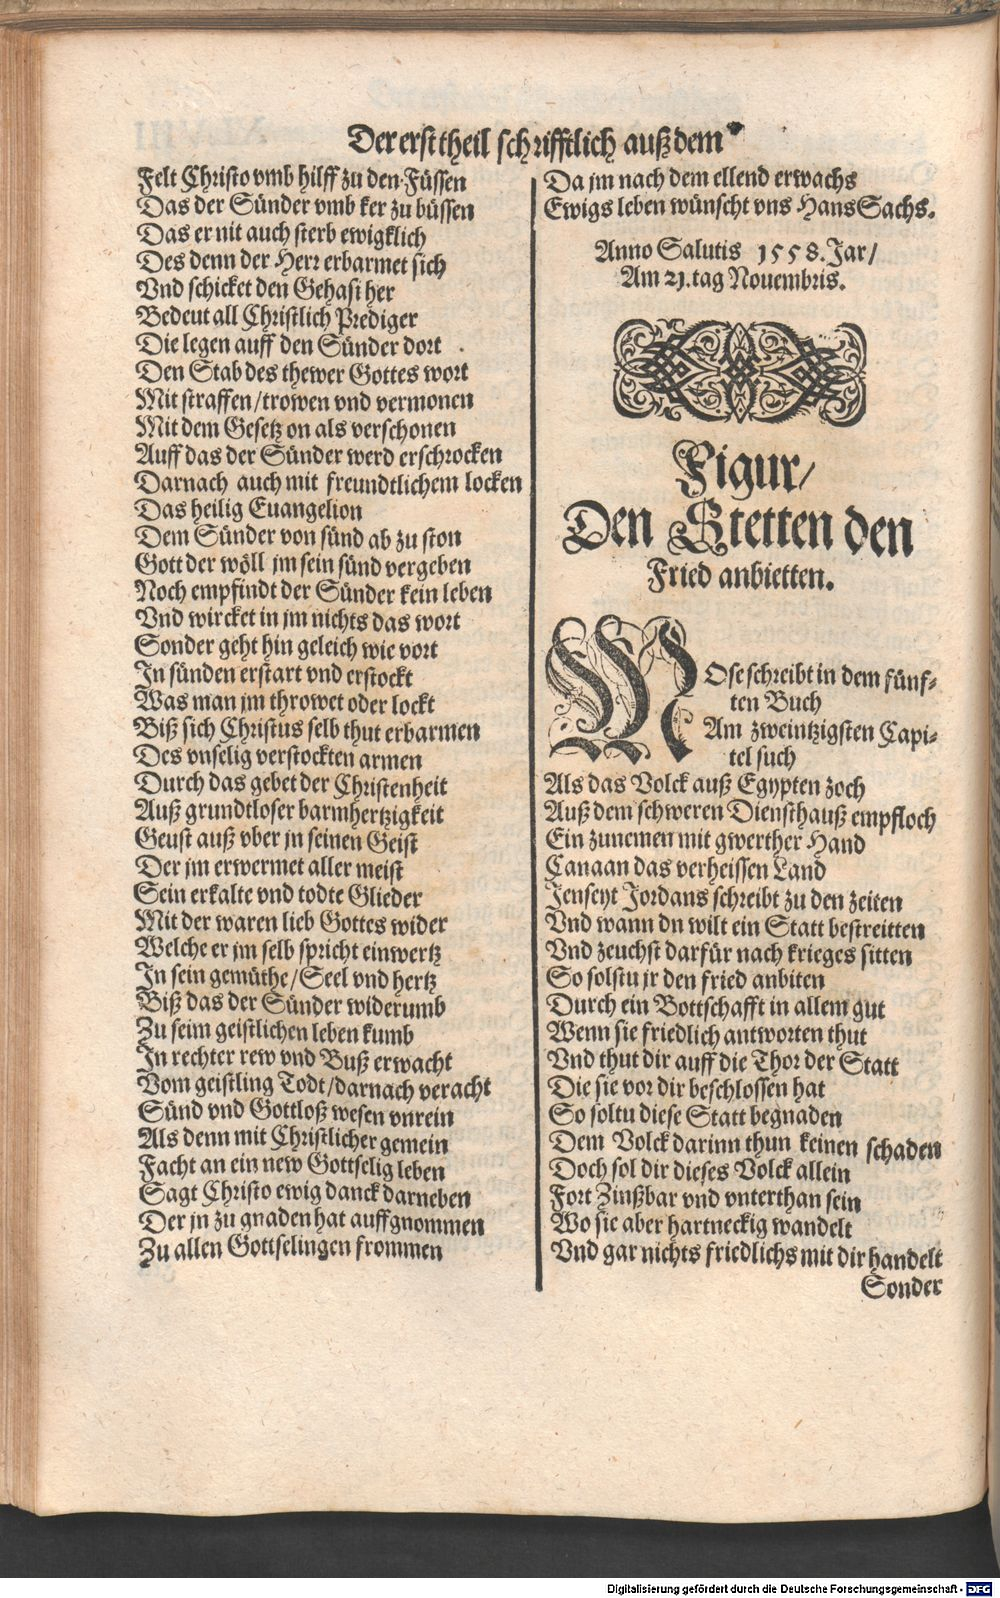 Der erst theil schrifftlich auß dem
Felt Christo vmb hilff zu den Füssen
Das der Sünder vmb ker zu büssen
Das er nit auch sterb ewigklich
Des denn der Herr erbarmet sich
Vnd schicket den Gehasi her
Bedeut all Christlich Prediger
Die legen auff den Sünder dort
Den Stab des thewer Gottes wort
Mit straffen/trowen vnd vermonen
Mit dem Gesetz on als verschonen
Auff das der Sünder werd erschrocken
Darnach auch mit freundtlichem locken
Das heilig Euangelion
Dem Sünder von sünd ab zu ston
Gott der wöll jm sein sünd vergeben
Noch empfindt der Sünder kein leben
Vnd wircket in jm nichts das wort
Sonder geht hin geleich wie vort
In sünden erstart vnd erstockt
Was man jm throwet oder lockt
Biß sich Christus selb thut erbarmen
Des vnselig verstockten armen
Durch das gebet der Christenheit
Auß grundtloser barmhertzigkeit
Geust auß vber jn seinen Geist
Der jm erwermet aller meist
Sein erkalte vnd todte Glieder
Mit der waren lieb Gottes wider
Welche er jm selb spricht einwertz
In sein gemüthe/Seel vnd hertz
Biß das der Sünder widerumb
Zu seim geistlichen leben kumb
In rechter rew vnd Buß erwacht
Vom geistling Todt/darnach veracht
Sünd vnd Gottloß wesen vnrein
Als denn mit Christlicher gemein
Facht an ein new Gottselig leben
Sagt Christo ewig danck darneben
Der jn zu gnaden hat auffgnommen
Zu allen Gottselingen frommen
Da jm nach dem ellend erwachs
Ewigs leben wünscht vns Hans Sachs.
Anno Salutis 1558. Jar/
Am 21. tag Nouembris.
Figur/
Den Stetten den
Fried anbietten.
MOse schreibt in dem fünf-
ten Buch
Am zweintzigsten Capi-
tel such
Als das Volck auß Egypten zoch
Auß dem schweren Diensthauß empfloch
Ein zunemen mit gwerther Hand
Canaan das verheissen Land
Jenseyt Jordans schreibt zu den zeiten
Vnd wann dn wilt ein Statt bestreitten
Vnd zeuchst darfür nach krieges sitten
So solstu jr den fried anbiten
Durch ein Bottschafft in allem gut
Wenn sie friedlich antworten thut
Vnd thut dir auff die Thor der Statt
Die sie vor dir beschlossen hat
So soltu diese Statt begnaden
Dem Volck darinn thun keinen schaden
Doch sol dir dieses Volck allein
Fort Zinßbar vnd vnterthan sein
Wo sie aber hartneckig wandelt
Vnd gar nichts friedlichs mit dir handelt
Sonder
Digitalisierung gefördert durch die Deutsche Forschungsgemeinschaft - DFG